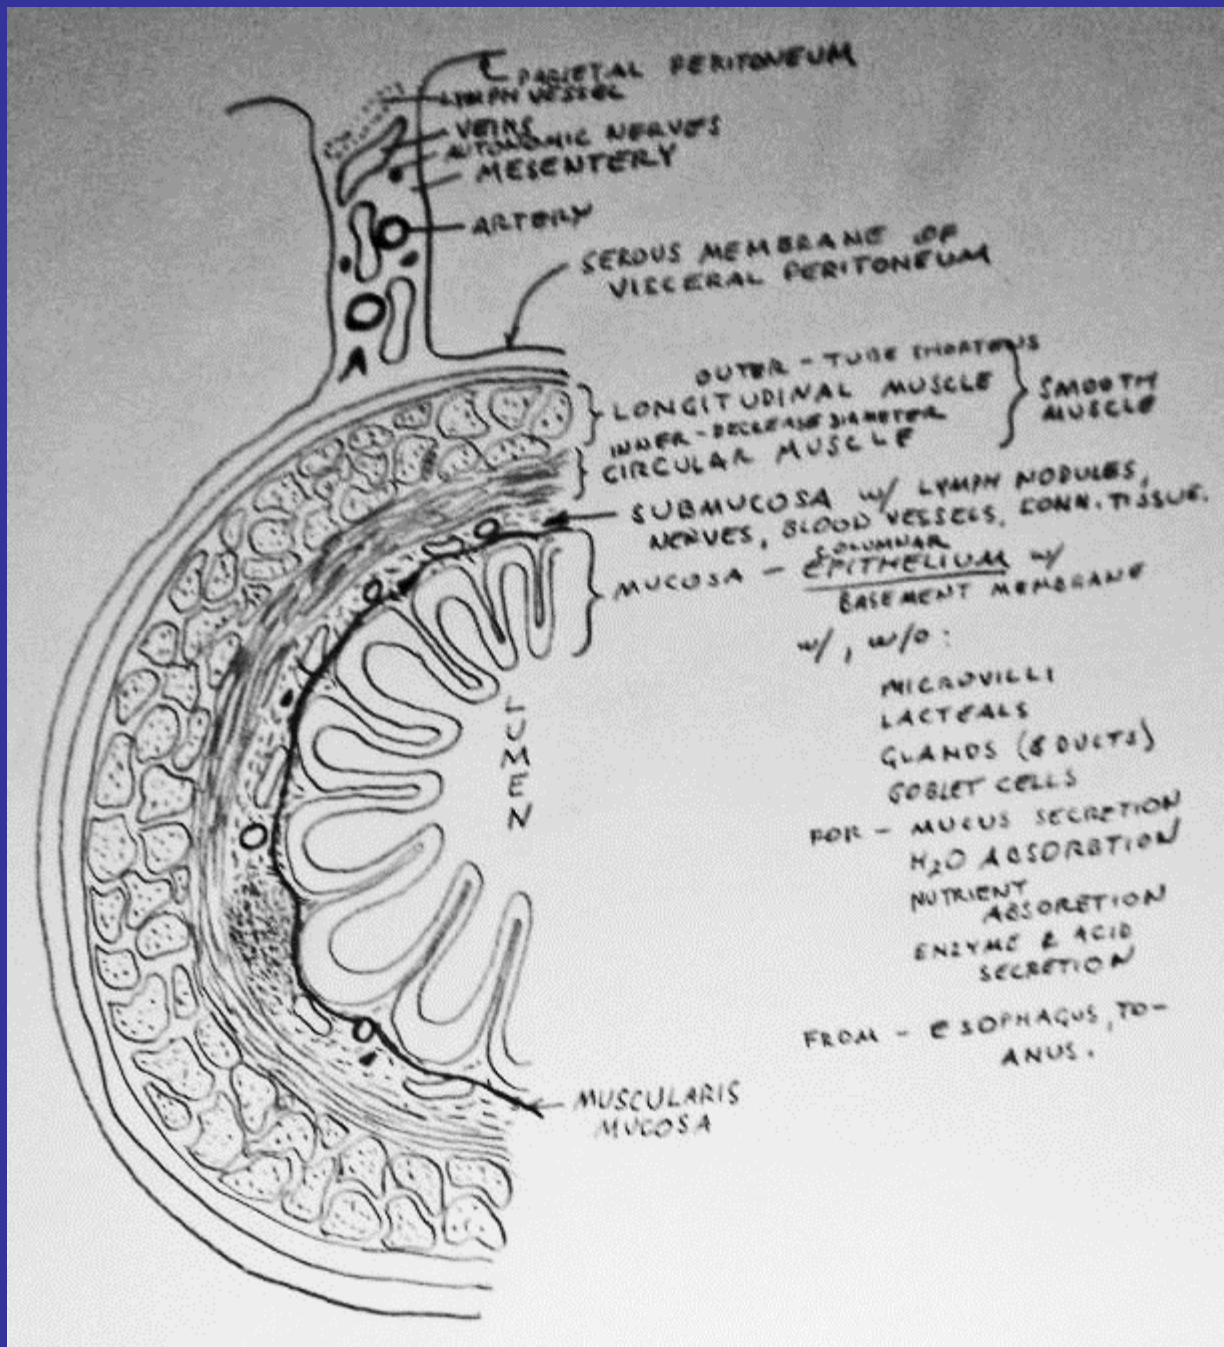 PARIETAL PERITONEUM
LYMPH VESSEL
VEINS
AUTONOMIC NERVES
MESENTERY
ARTERY
SEROUS MEMBRANE OF
VISCERAL PERITONEUM
A
OUTER - TUBE SHORTENS
LONGITUDINAL MUSCLE
INNER - DECREASE DIAMETER
CIRCULAR MUSCLE
SMOOTH
MUSCLE
SUBMUCOSA w/ LYMPH NODULES,
NERVES, BLOOD VESSELS, CONN. TISSUE.
COLUMNAR
MUCOSA - EPITHELIUM w/
BASEMENT MEMBRANE
w/, w/o:
MICROVILLI
LACTEALS
GLANDS (& DUCTS)
GOBLET CELLS
FOR - MUCUS SECRETION
H₂O ABSORBTION
NUTRIENT
ABSORBTION
ENZYME & ACID
SECRETION
FROM - ESOPHAGUS, TO -
ANUS.
LUMEN
MUSCULARIS
MUCOSA